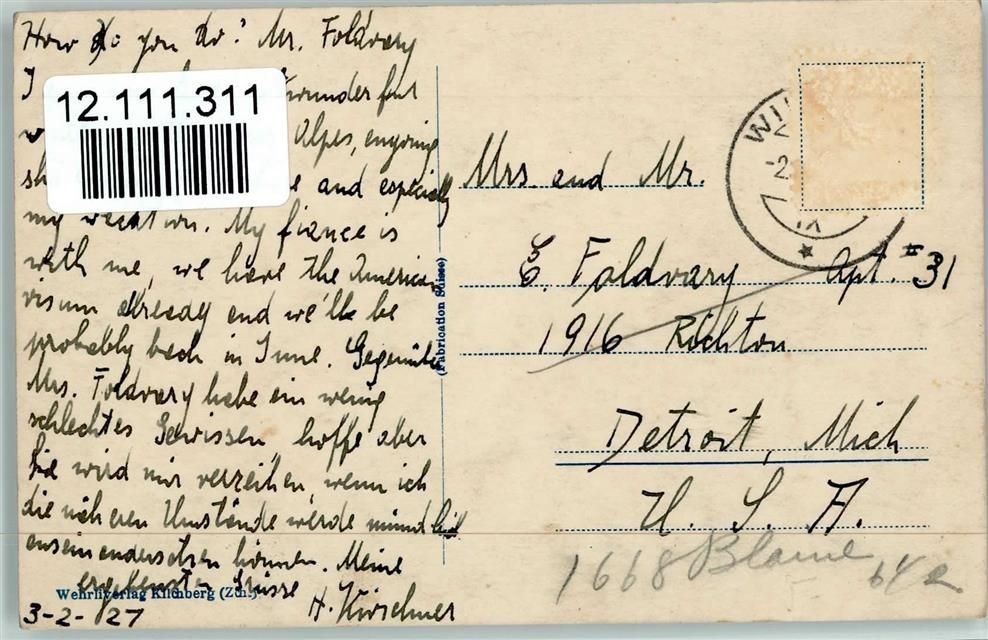 How do you do? Mr. Foldvary
I
12.111.311
wunderful
Alpes, enyoing
and especially
my vecation. My fiance is
with me, we have the American
visum already and we'll be
probably bach in June. Gegenüber
Mrs. Foldvary habe ein wenig
schlechtes Gewissen hoffe aber
Sie wird mir verzeihen, wenn ich
die näheren Umstände werde mündlich
auseinandersetzen können. Meine
ergebensten Grüsse
H. Hirschmer
3-2-27
Wehrliverlag Kilchberg (Zch.)
(Fabrication Suisse)
Mrs. and Mr.
E. Foldvary Apt. #31
1916 Richton
Detroit, Mich
U. S. A.
1668 Blaine
WI
-2
VI